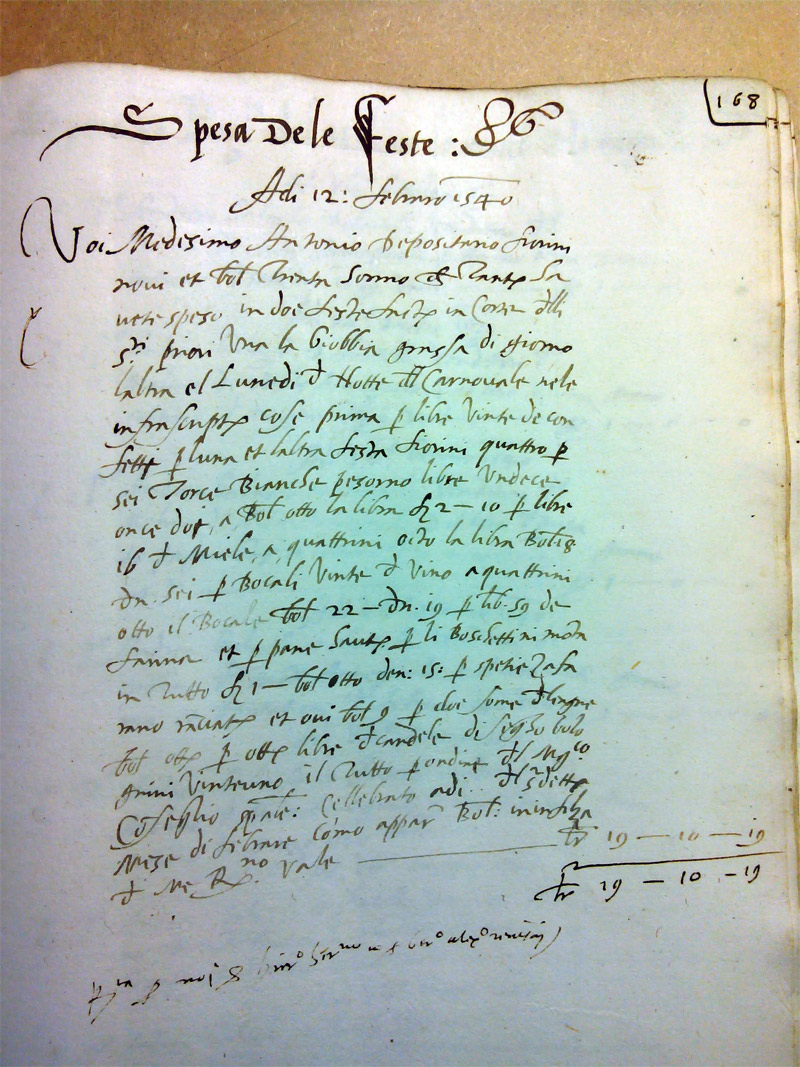 168
Spesa Dele Feste :
Adi 12: febraro 1540
Voi Medesimo Antonio Depositario fiorini
novi et bol trenta sonno et Tanti Ha
vete speso in doe feste facte in Corte dlli
Sri priori Una la Giobbia grassa di giorno
laltra el Lunedi d Notte dl Carnovale nele
infrascripte cose prima p libre Vinte de con
fetti p luna et laltra festa fiorini quattro p
sei Torce Bianche pesorno libre Undece
once doi, a Bol otto la libra fl 2 — 10 p libre
16 d Miele, a, quattrini octo la libra Bol: 18
dn. sei p Bocali Vinte d Vino a quattrini
otto il Bocale bol 22 — dn. 19 p lib. 59 de
farina et p pane p li Boschettini
in Tutto fl 1 — bol otto den: 15: p spetie Zafa
rano et ovi bol 9 p doe some d legne
bol otto p otto libre d candele di segho bolo
gnini Vinteuno il Tutto p ordine dl Mgco
Coseglio Cellebrato adi .. dl detto
Mese di febraro cómo appar Bol: in infilza
d Me no Vale — fr 19 — 10 — 19
fr 19 — 10 — 19